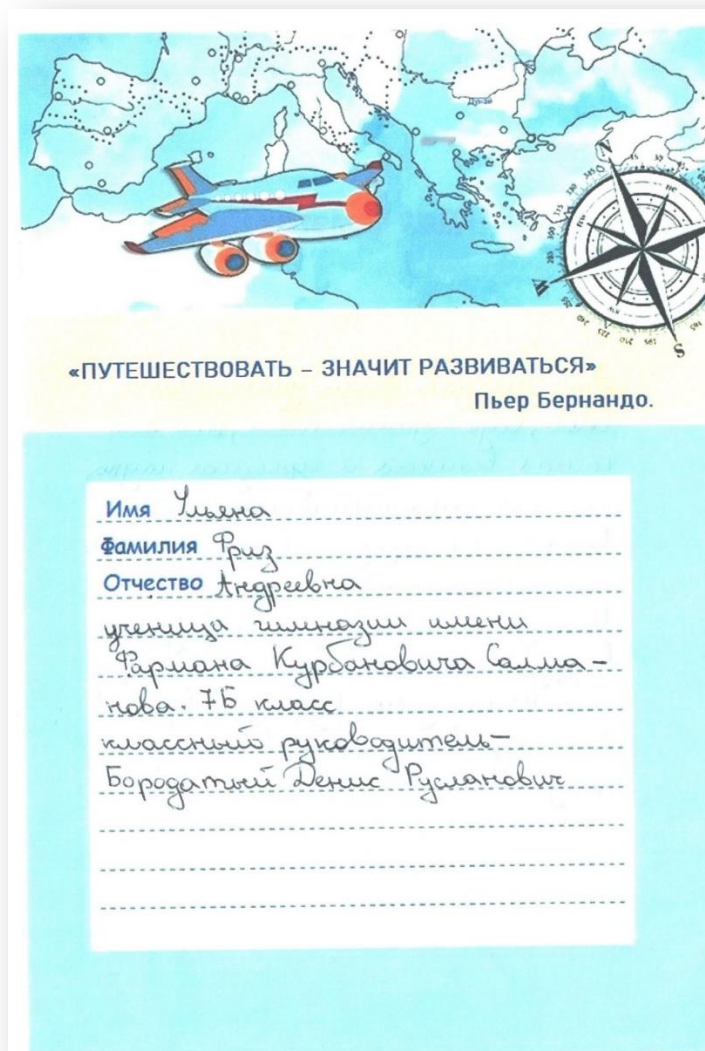 Дунай
N
S
«ПУТЕШЕСТВОВАТЬ – ЗНАЧИТ РАЗВИВАТЬСЯ»
Пьер Бернандо.
Имя Ульяна
Фамилия Фриз
Отчество Андреевна
ученица гимназии имени
Фармана Курбановича Салма-
нова. 7Б класс
классный руководитель-
Бородатый Денис Русланович